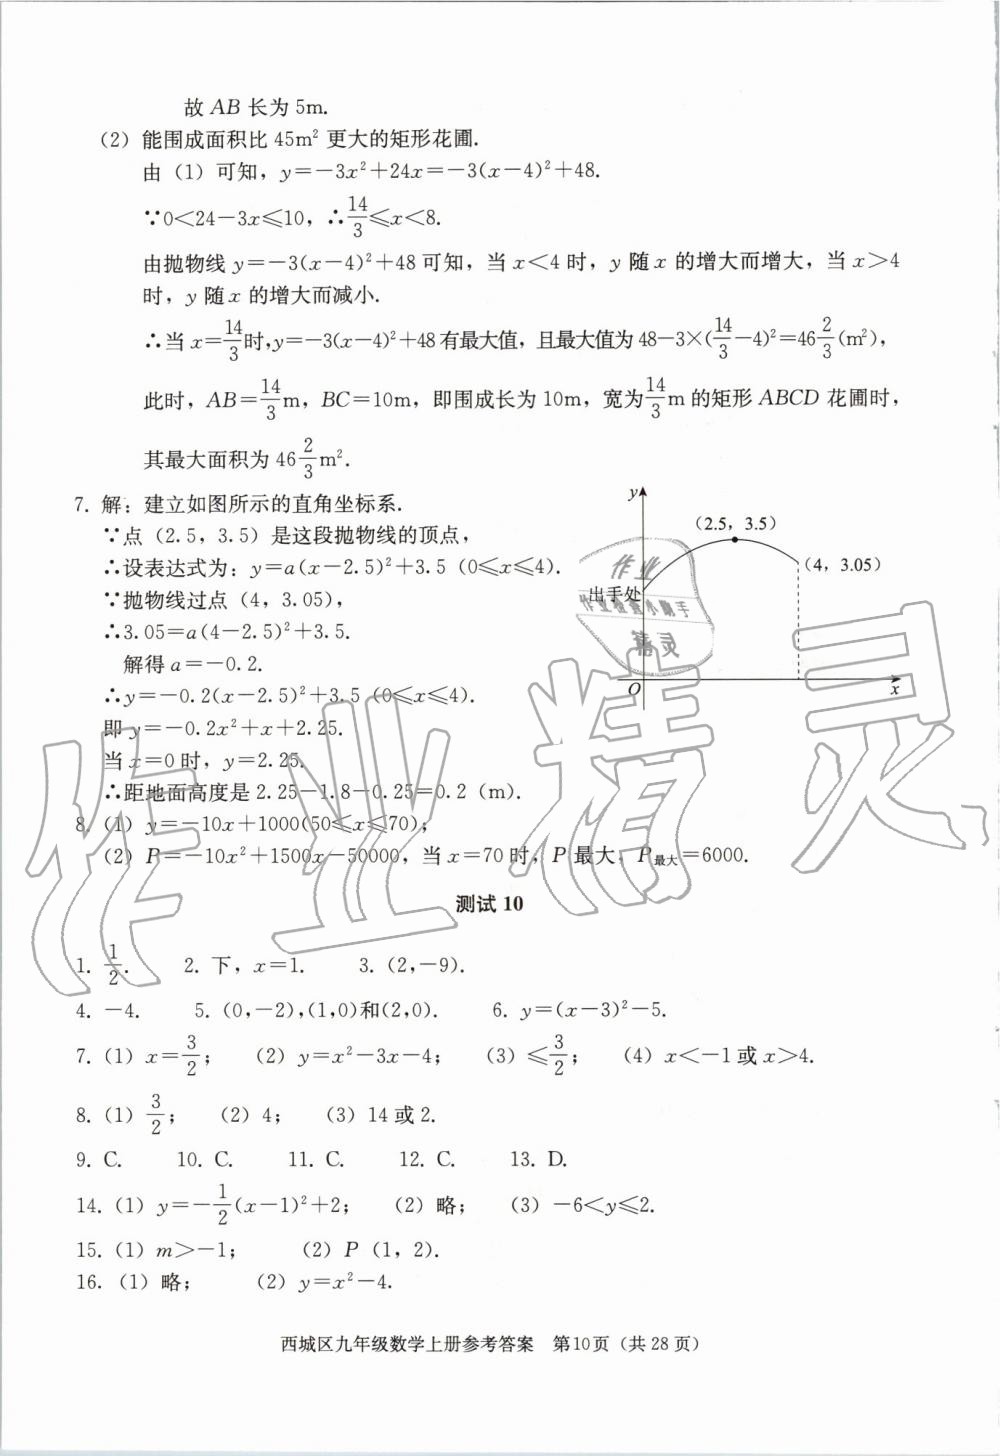 故 AB 长为 5m.
(2) 能围成面积比 45m² 更大的矩形花圃.
由（1）可知，y=-3x²+24x=-3(x-4)²+48.
∵0<24-3x≤10，∴14/3≤x<8.
由抛物线 y=-3(x-4)²+48 可知，当 x<4 时，y 随 x 的增大而增大，当 x>4
时，y 随 x 的增大而减小.
∴当 x=14/3时,y=-3(x-4)²+48 有最大值，且最大值为 48-3×(14/3-4)²=46 2/3(m²)，
此时，AB=14/3m，BC=10m，即围成长为 10m，宽为14/3m 的矩形 ABCD 花圃时，
其最大面积为 46 2/3 m².
7. 解：建立如图所示的直角坐标系.
∵点（2.5，3.5）是这段抛物线的顶点，
∴设表达式为：y=a(x-2.5)²+3.5 (0≤x≤4).
∵抛物线过点（4，3.05)，
∴3.05=a(4-2.5)²+3.5.
解得 a=-0.2.
∴y=-0.2(x-2.5)²+3.5 (0≤x≤4).
即 y=-0.2x²+x+2.25.
当 x=0 时，y=2.25.
∴距地面高度是 2.25-1.8-0.25=0.2（m）.
y
(2.5，3.5)
(4，3.05)
出手处
O
x
8. (1) y=-10x+1000(50≤x≤70)；
(2) P=-10x²+1500x-50000，当 x=70 时，P 最大，P最大=6000.
测试 10
1. 1/2. 2. 下，x=1. 3. (2,-9).
4. -4. 5. (0,-2),(1,0)和(2,0). 6. y=(x-3)²-5.
7. (1) x=3/2； (2) y=x²-3x-4； (3) ≤3/2； (4) x<-1 或 x>4.
8. (1) 3/2； (2) 4； (3) 14 或 2.
9. C. 10. C. 11. C. 12. C. 13. D.
14. (1) y=-1/2(x-1)²+2； (2) 略； (3) -6<y≤2.
15. (1) m>-1； (2) P（1，2）.
16. (1) 略； (2) y=x²-4.
西城区九年级数学上册参考答案 第10页（共 28 页）
作业
作业检查小助手
精灵
作业精灵